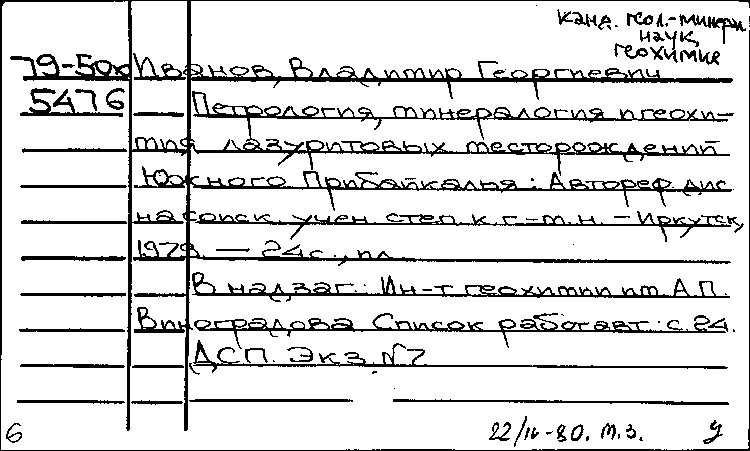 канд. геол.-минерал.
наук,
геохимия
79-50к Иванов, Владимир Георгиевич
5476 Петрология, минералогия и геохи-
мия лазуритовых месторождений
Южного Прибайкалья : Автореф дис
на соиск учен степ к. г.-м. н. - Иркутск,
1979. — 24 с., ил.
В надзаг.: Ин-т геохимии им. А.П.
Виноградова Список работ авт.: с. 24.
ДСП. Экз. №7
6 22/IV-80. т.з.